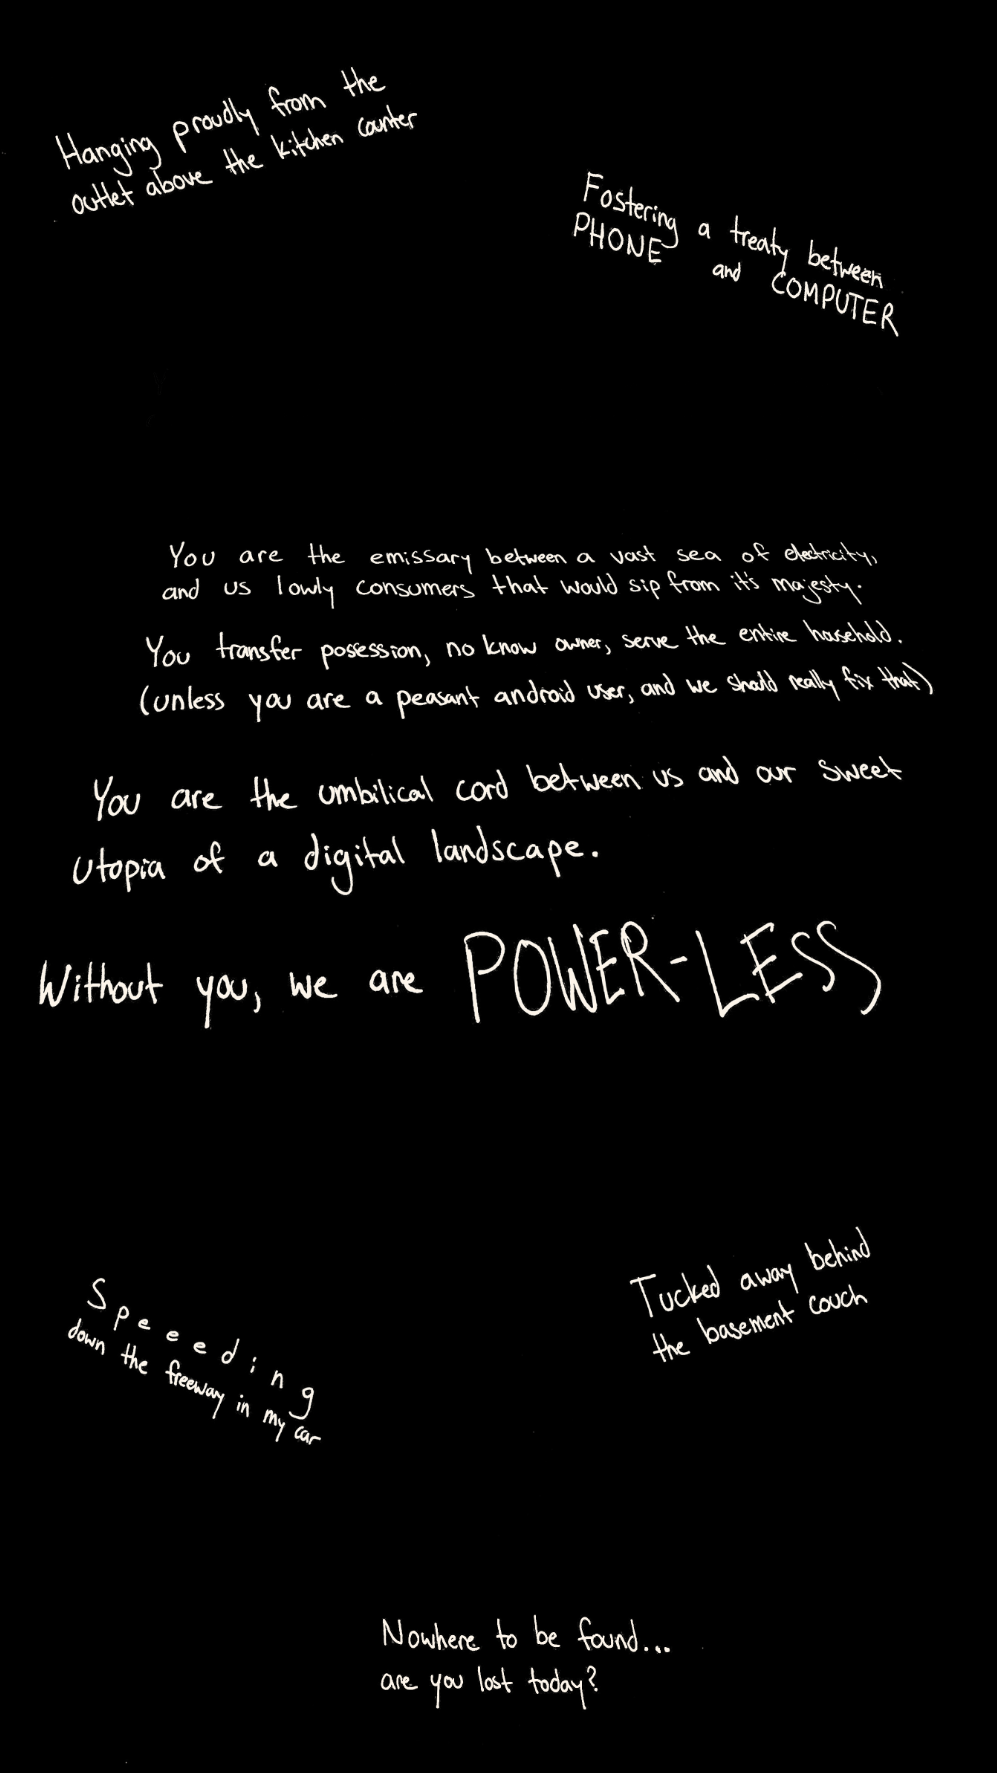 Hanging proudly from the
outlet above the kitchen counter
Fostering a treaty between
PHONE and COMPUTER
You are the emissary between a vast sea of electricity,
and us lowly consumers that would sip from it's majesty.
You transfer posession, no know owner, serve the entire household.
(unless you are a peasant android user, and we should really fix that)
You are the umbilical cord between us and our sweet
utopia of a digital landscape.
Without you, we are POWER-LESS
Speeeding
down the freeway in my car
Tucked away behind
the basement couch
Nowhere to be found...
are you lost today?